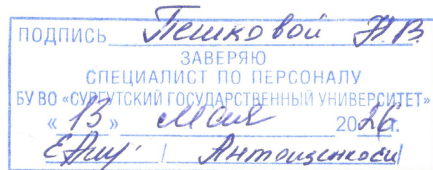 ПОДПИСЬ Пешковой Н.В.
ЗАВЕРЯЮ
СПЕЦИАЛИСТ ПО ПЕРСОНАЛУ
БУ ВО «СУРГУТСКИЙ ГОСУДАРСТВЕННЫЙ УНИВЕРСИТЕТ»
«13» мая 2026г.